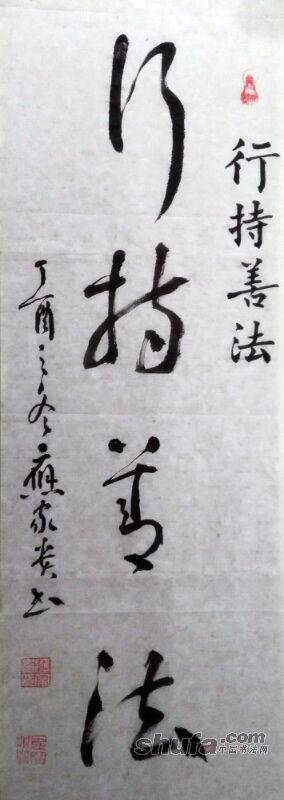 行持善法
行持善法
丁酉之冬應家贵书
shufa.com
中国书法网